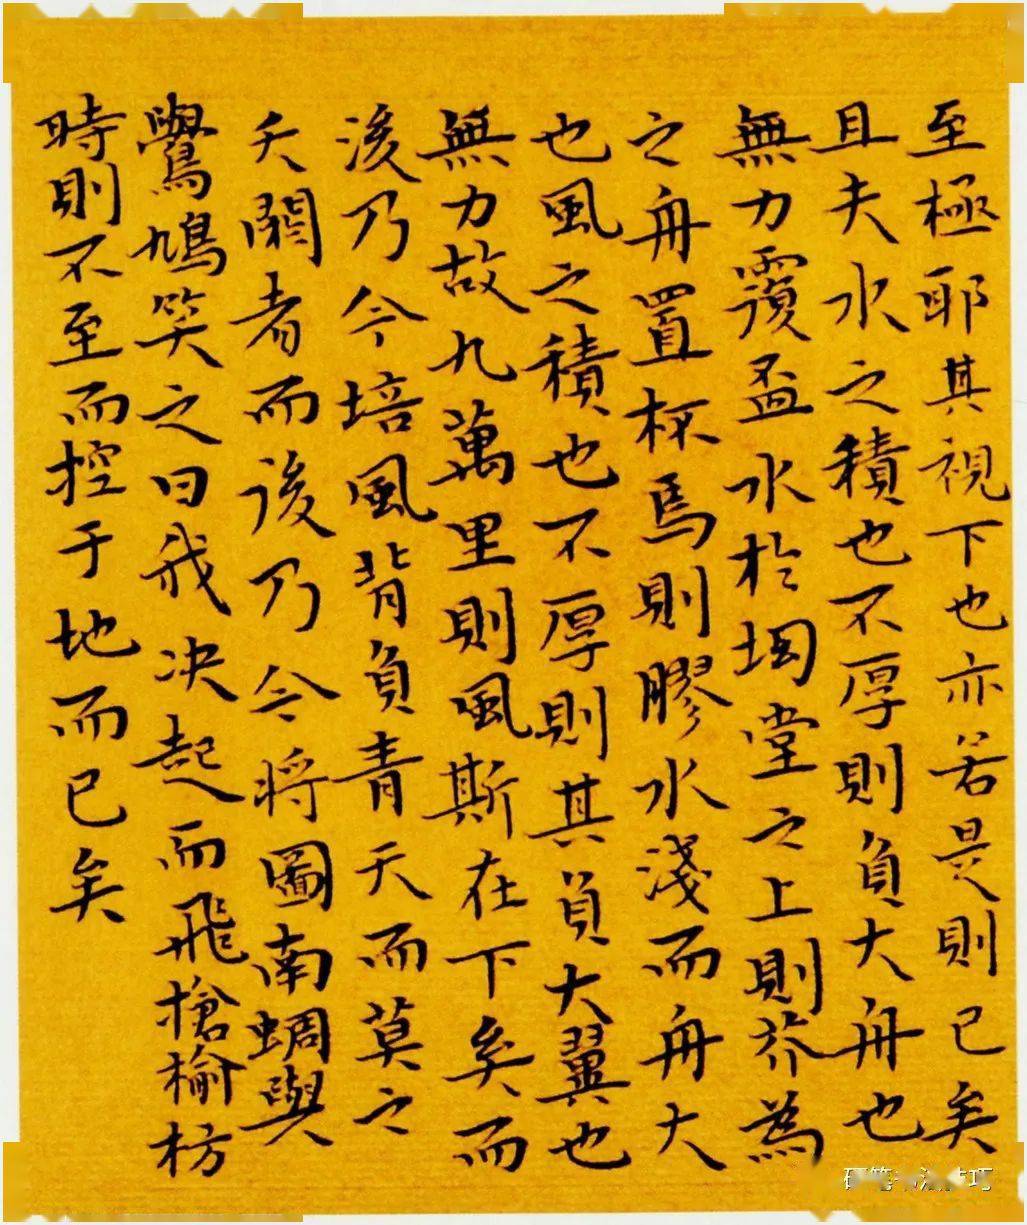 至極耶其視下也亦若是則已矣
且夫水之積也不厚則負大舟也
無力覆盃水於坳堂之上則芥為
之舟置杯焉則膠水淺而舟大
也風之積也不厚則其負大翼也
無力故九萬里則風斯在下矣而
後乃今培風背負青天而莫之
夭閼者而後乃今將圖南蜩與
鷽鳩笑之曰我決起而飛搶榆枋
時則不至而控于地而已矣